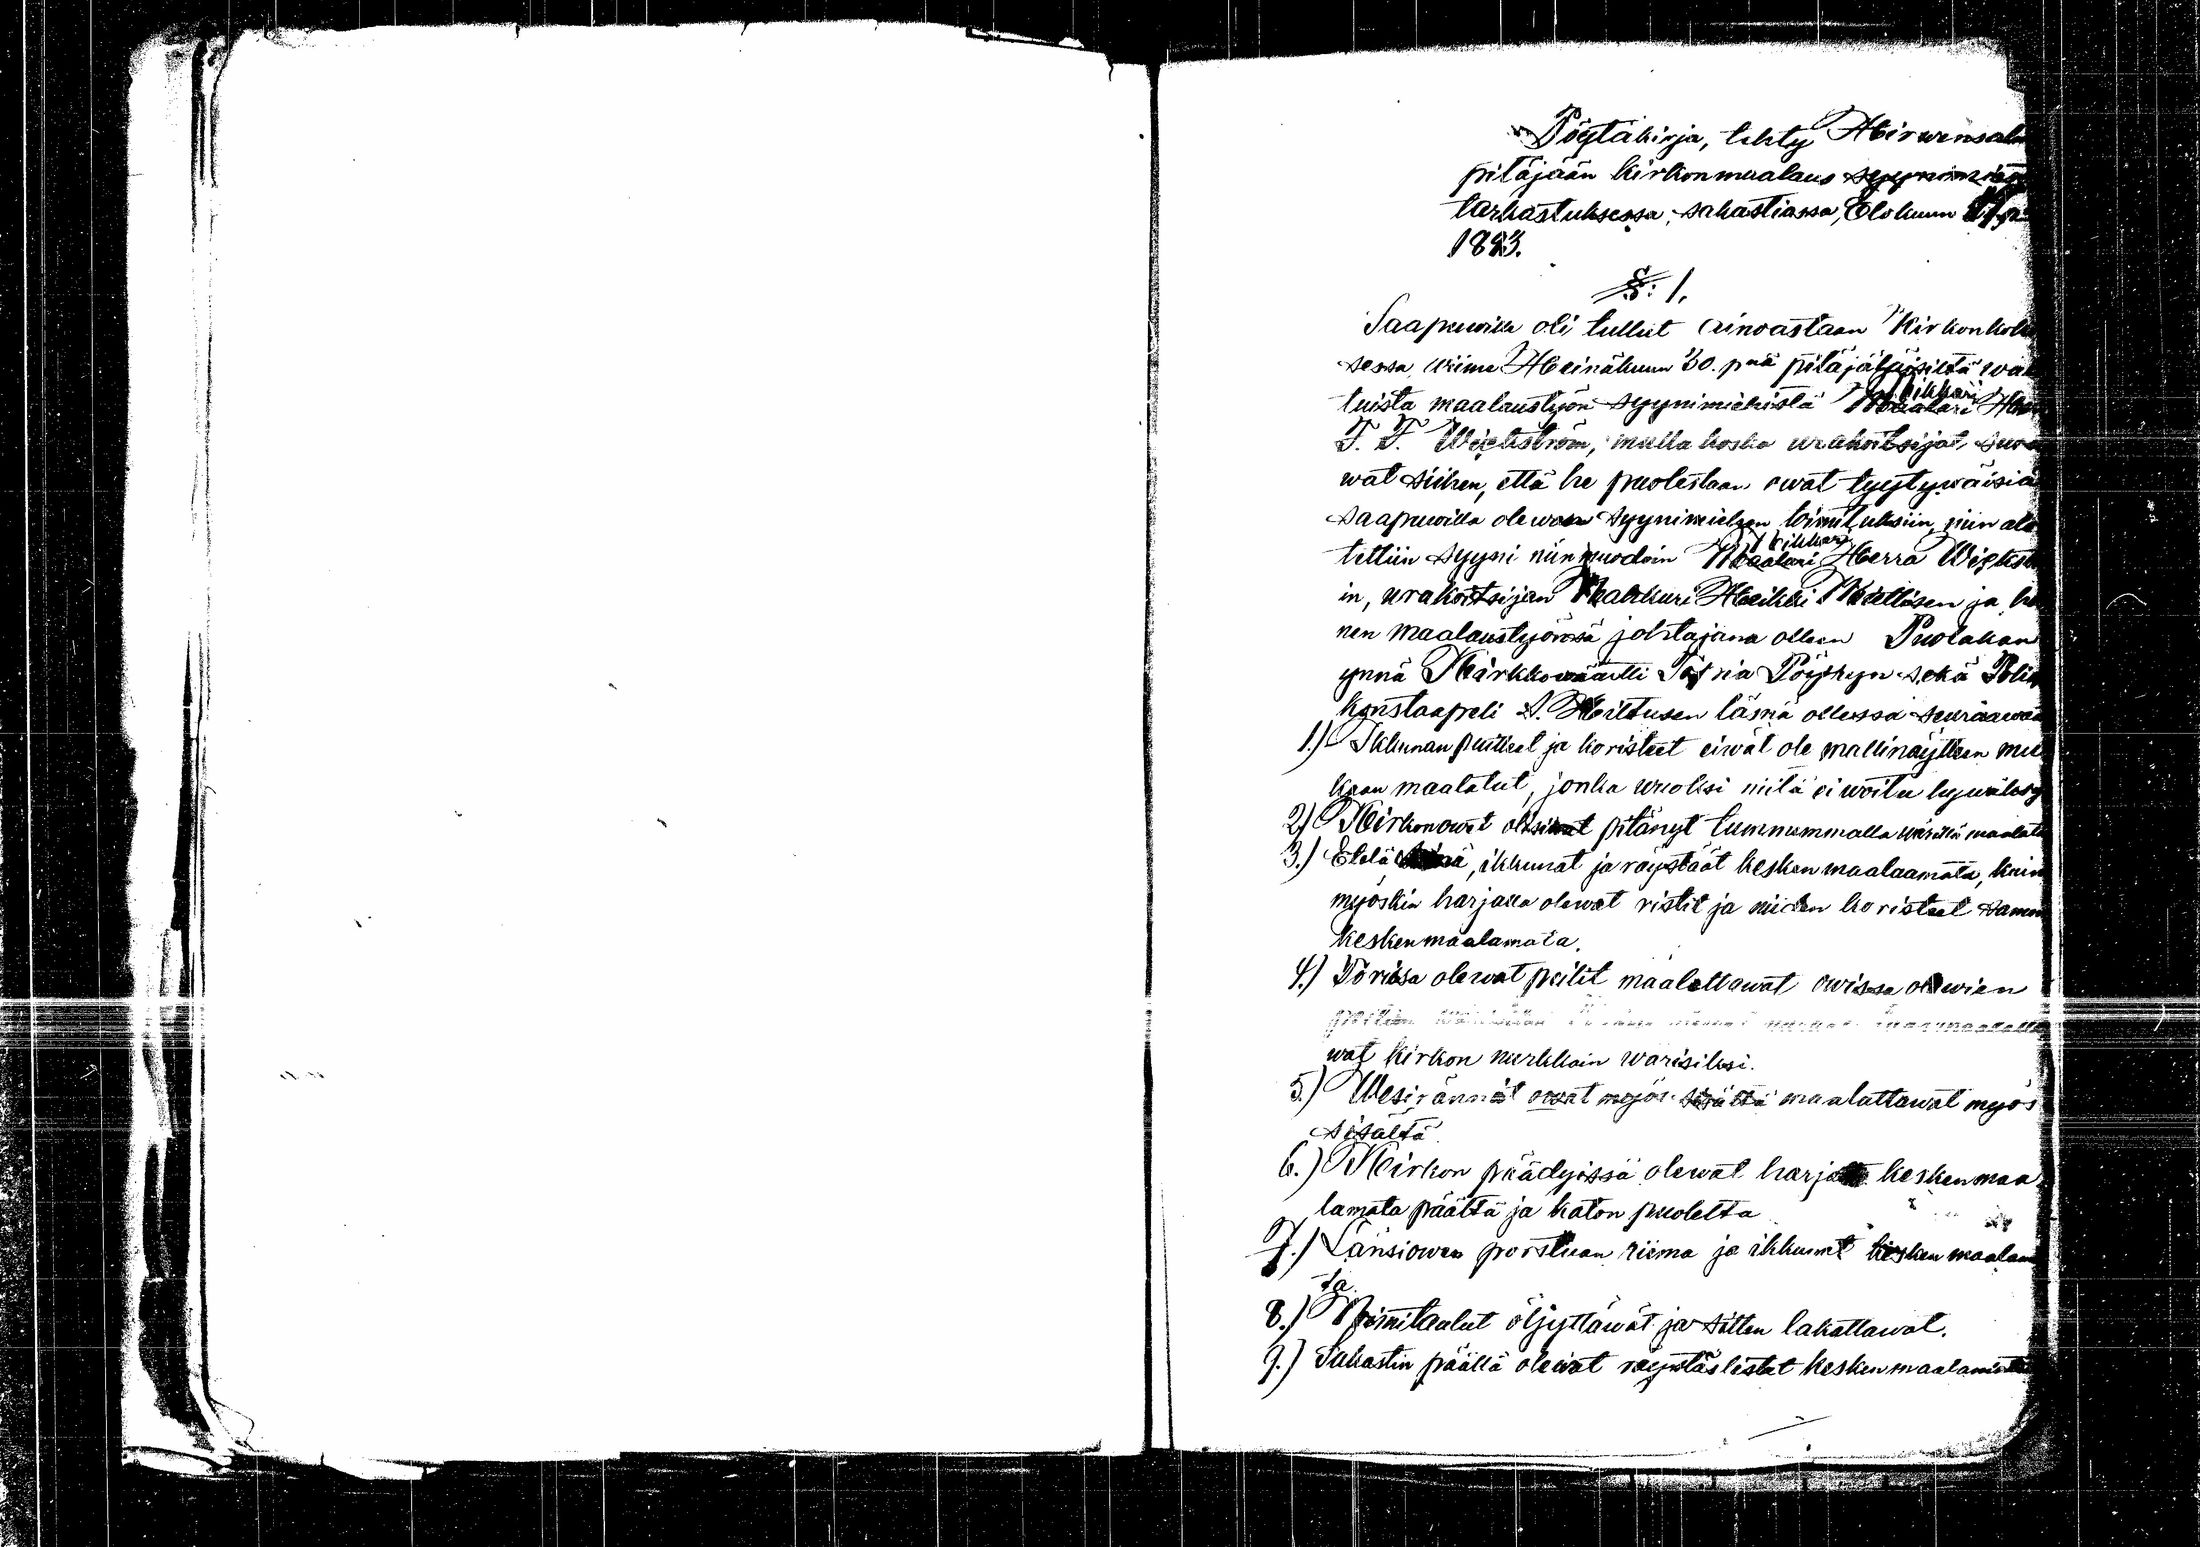 Pöytäkirja, tehty Hirwensalm
pitäjään kirkonmaalaus syynimies
tarkastuksessa, sakastiassa, Elokuun
1883.
§: 1.
Saapuwilla oli tullut ainoastaan Kirkonkok
sessa wiime Heinäkuun 30. pnä pitäjäläisiltä wa
Nikkari
tuista maalaustyön syynimiehistä Maalari Her
F. F. Wickström, mutta koska urakoitsijat suos
wat siihen, että he puolestaan owat tyytywäisiä
saapuwilla olewan syynimiehen toimituksiin, niin alo
Nikkari
tettiin syyni niinmuodoin Maalari Herra Wickst
in, urakoitsijan Maakkuri Heikki Miettisen ja hä
nen maalaustyössä johtajana olleen Puolakan
ynnä Kirkkowäärtti Pöyhyn sekä Poli
konstaapeli A. Hiltusen läsnä ollessa seuraawa
1.) Ikkunan puitteet ja koristeet eiwät ole mallinäytteen mu
kaan maalatut, jonka wuoksi niitä ei woitu hywäksy
2) Kirkonowet olisiwat pitänyt tummemmalla wärillä maalata
3.) Etelä, ikkunat ja räystäät kesken maalaamata, kuin
myöskin harjalla olewat ristit ja niiden koristeet samo
keskenmaalamata.
4.) Törissa olewat peilit maalattawat owissa olewien
peilien
wat kirkon nurkkain wärisiksi.
5.) Wesirännät owat myös sisältä maalattawat myös
sisältä
6.) Kirkon päädyissä olewat harjat keskenmaa
lamata päältä ja katon puolelta
7.) Länsiowen porstuan riima ja ikkunat kesken maalama
ta.
8.) Nimitaulut öljyttäwät ja sitten lakattawat.
9.) Sakastin päällä olewat räystäslistat keskenmaalamata